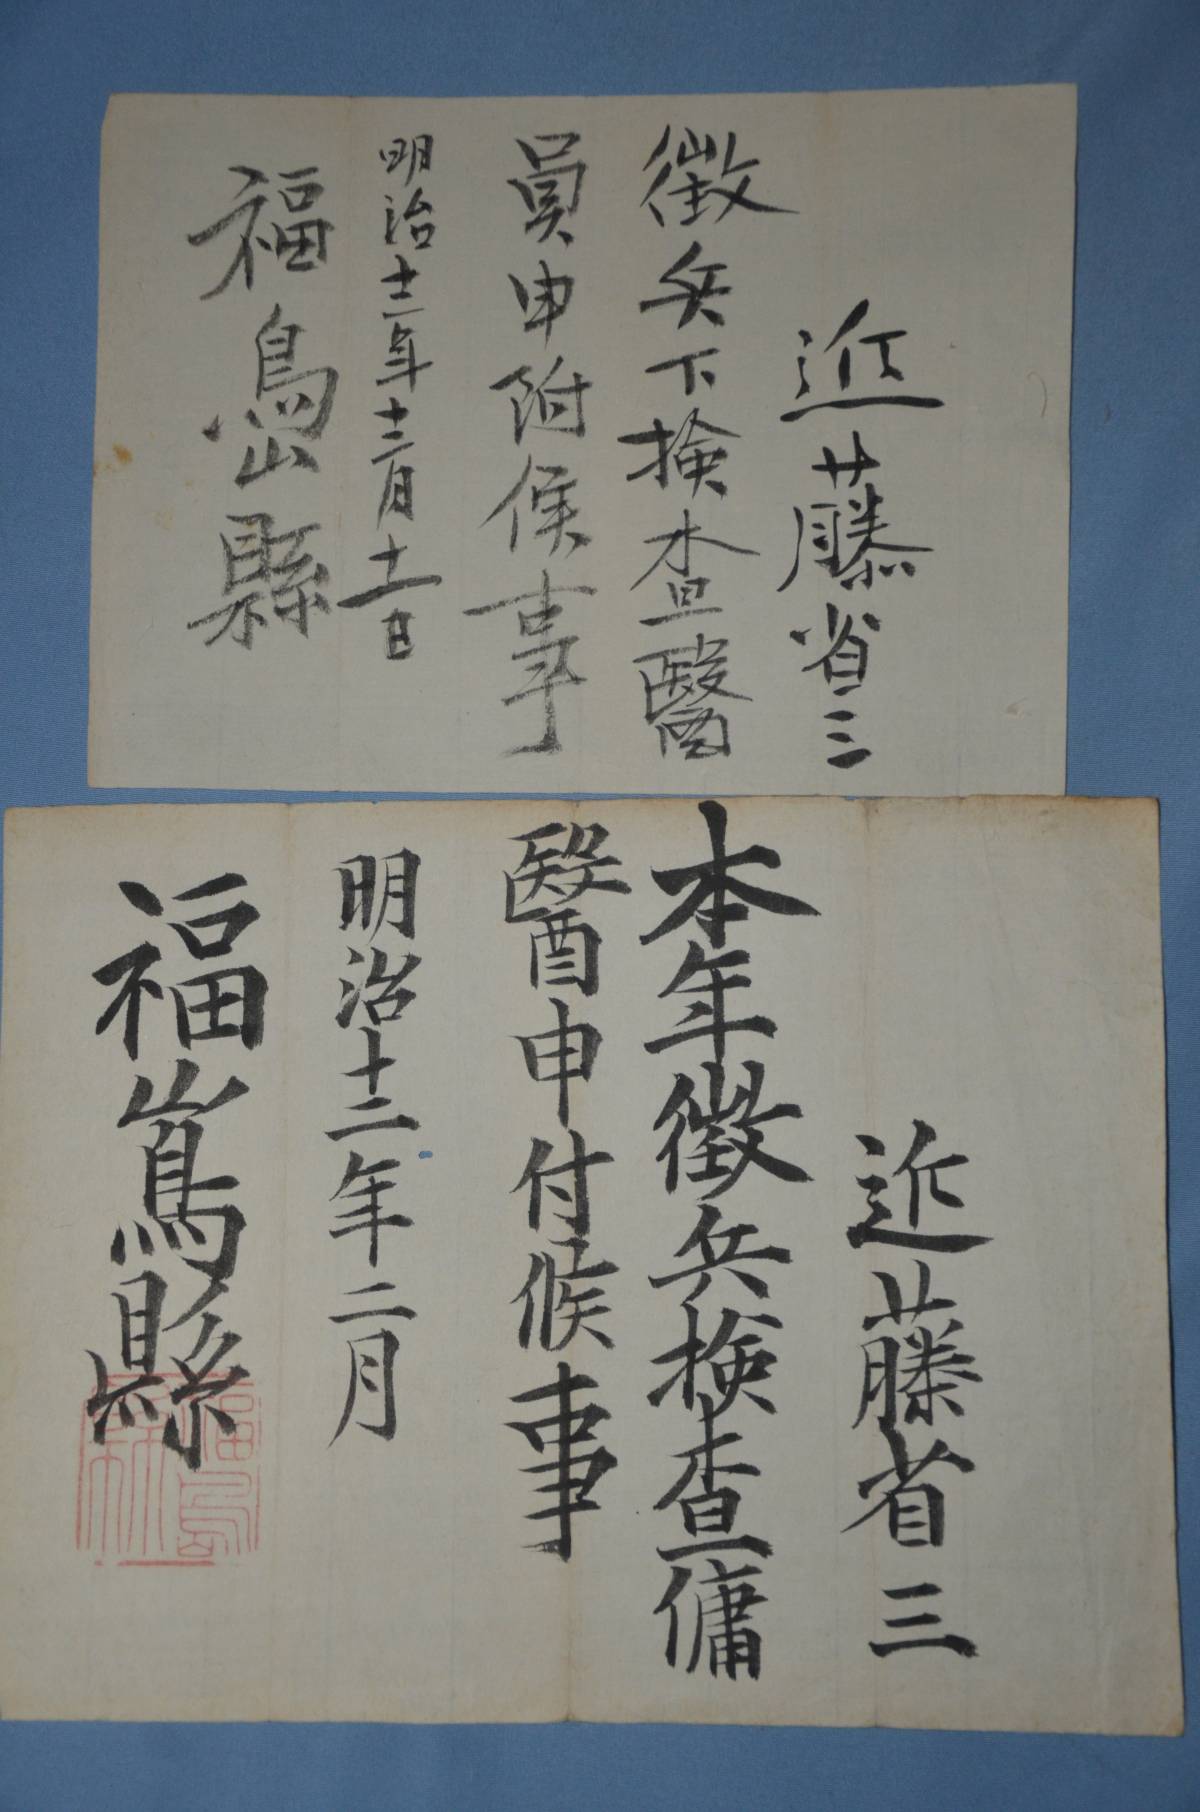 近藤省三
徴兵下検査醫
員申附候事
明治十二年十二月十一日
福島縣
近藤省三
本年徴兵検査傭
醫申付候事
明治十二年二月
福嶌縣